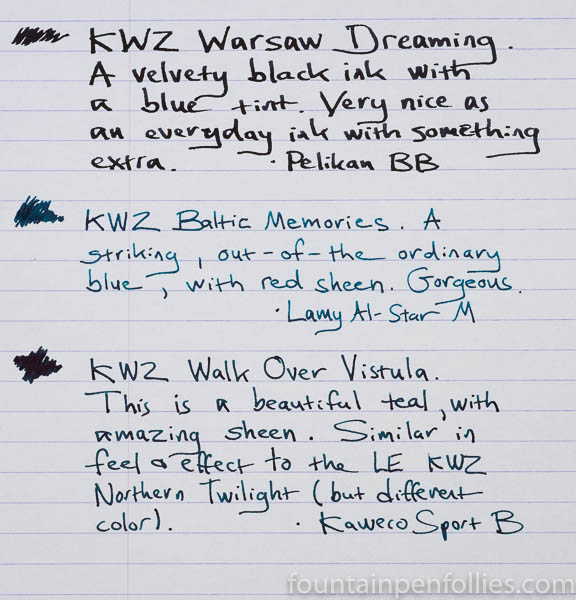 KWZ Warsaw Dreaming.
A velvety black ink with
a blue tint. Very nice as
an everyday ink with something
extra. · Pelikan BB
KWZ Baltic Memories. A
striking, out-of-the ordinary
blue, with red sheen. Gorgeous.
· Lamy Al-Star M
KWZ Walk Over Vistula.
This is a beautiful teal, with
amazing sheen. Similar in
feel & effect to the LE KWZ
Northern Twilight (but different
color). · Kaweco Sport B
fountainpenfollies.com